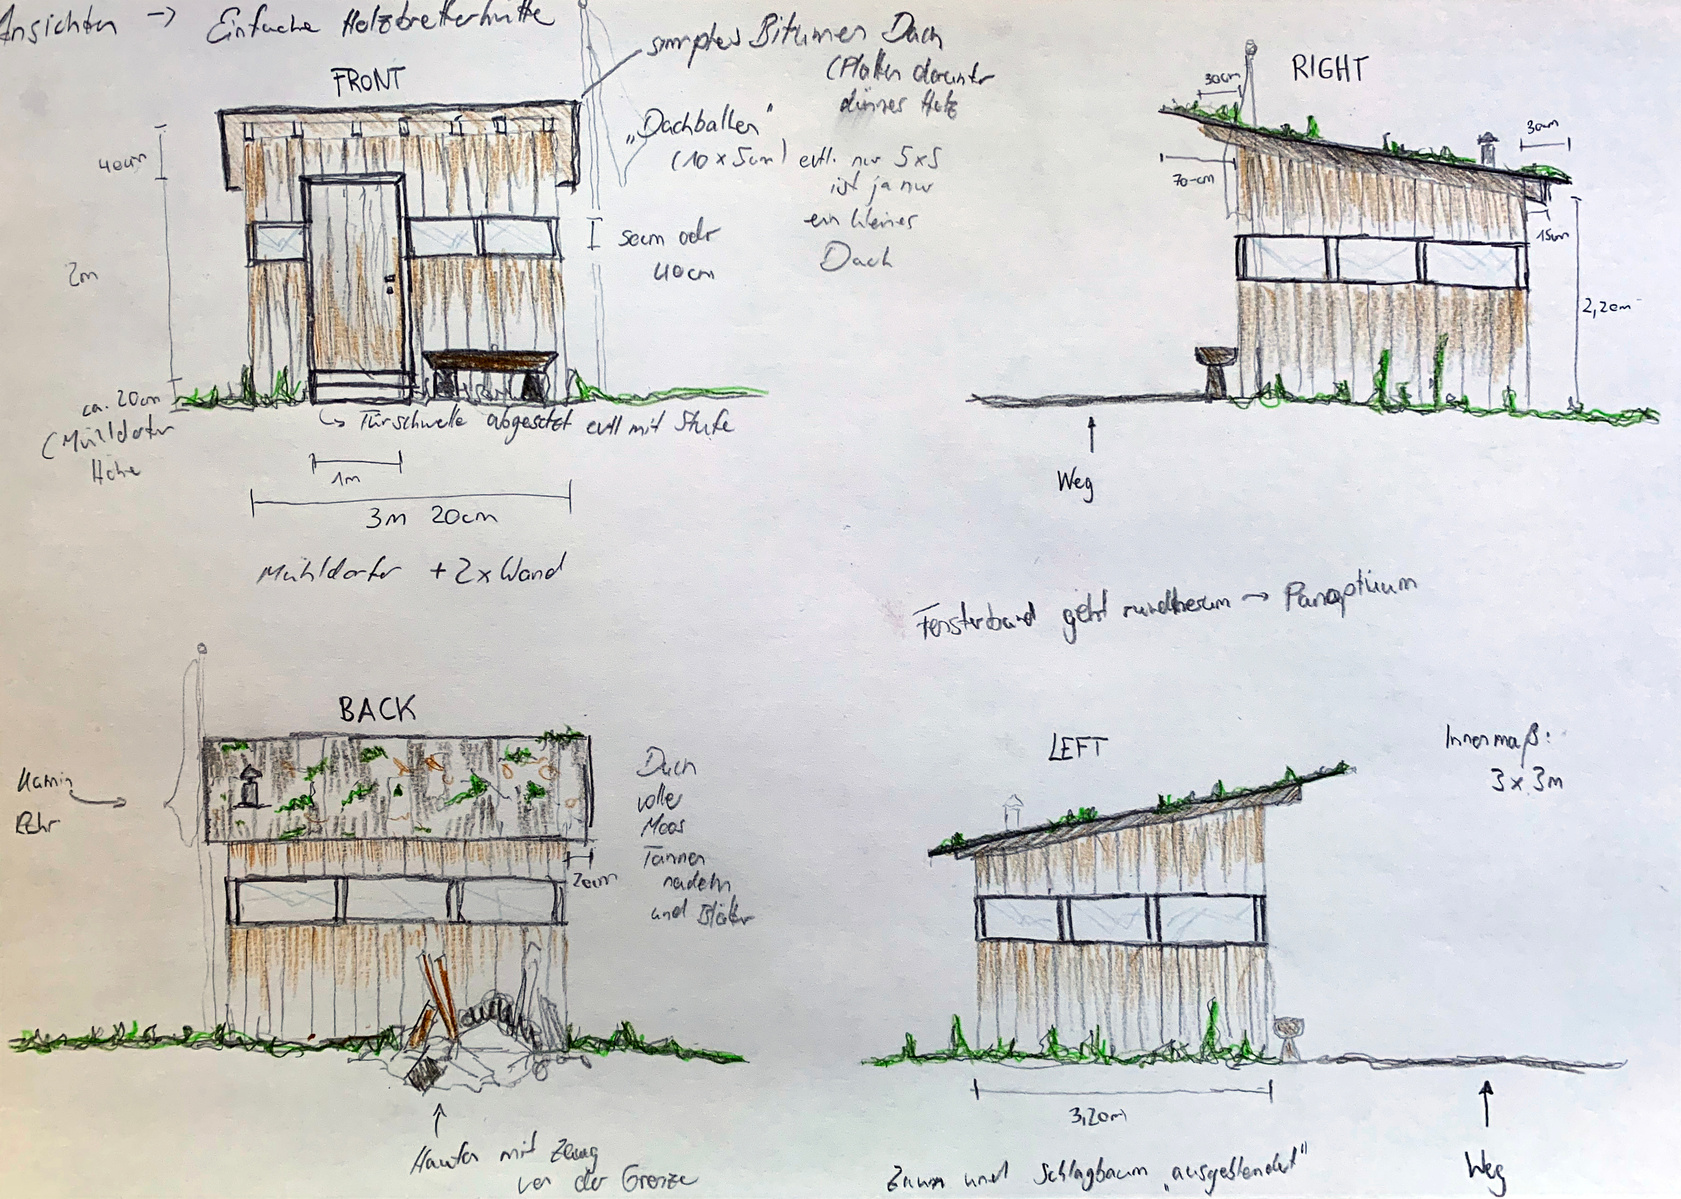 Ansichten → Einfache Holzbretterhütte
FRONT
simples Bitumen Dach
(Platten darunter
dünnes Holz
„Dachbalken"
(10 x 5cm) evtl. nur 5x5
ist ja nur
ein kleines
Dach
40cm
2m
50cm oder
40cm
ca. 20cm
(Mühldorfer
Höhe
↳ Türschwelle abgesetzt evtl mit Stufe
1m
3m 20cm
Mühldorfer + 2x Wand
RIGHT
30cm
30cm
70cm
15cm
2,20m
Weg
Fensterband geht rundherum → Panoptikum
BACK
Kamin
Rohr
Dach
voller
Moos
Tannen
nadeln
und Blätter
20cm
Haufen mit Zeug
von der Grenze
LEFT
Innenmaß:
3 x 3m
3,20m
Zaun und Schlagbaum „ausgeblendet"
Weg